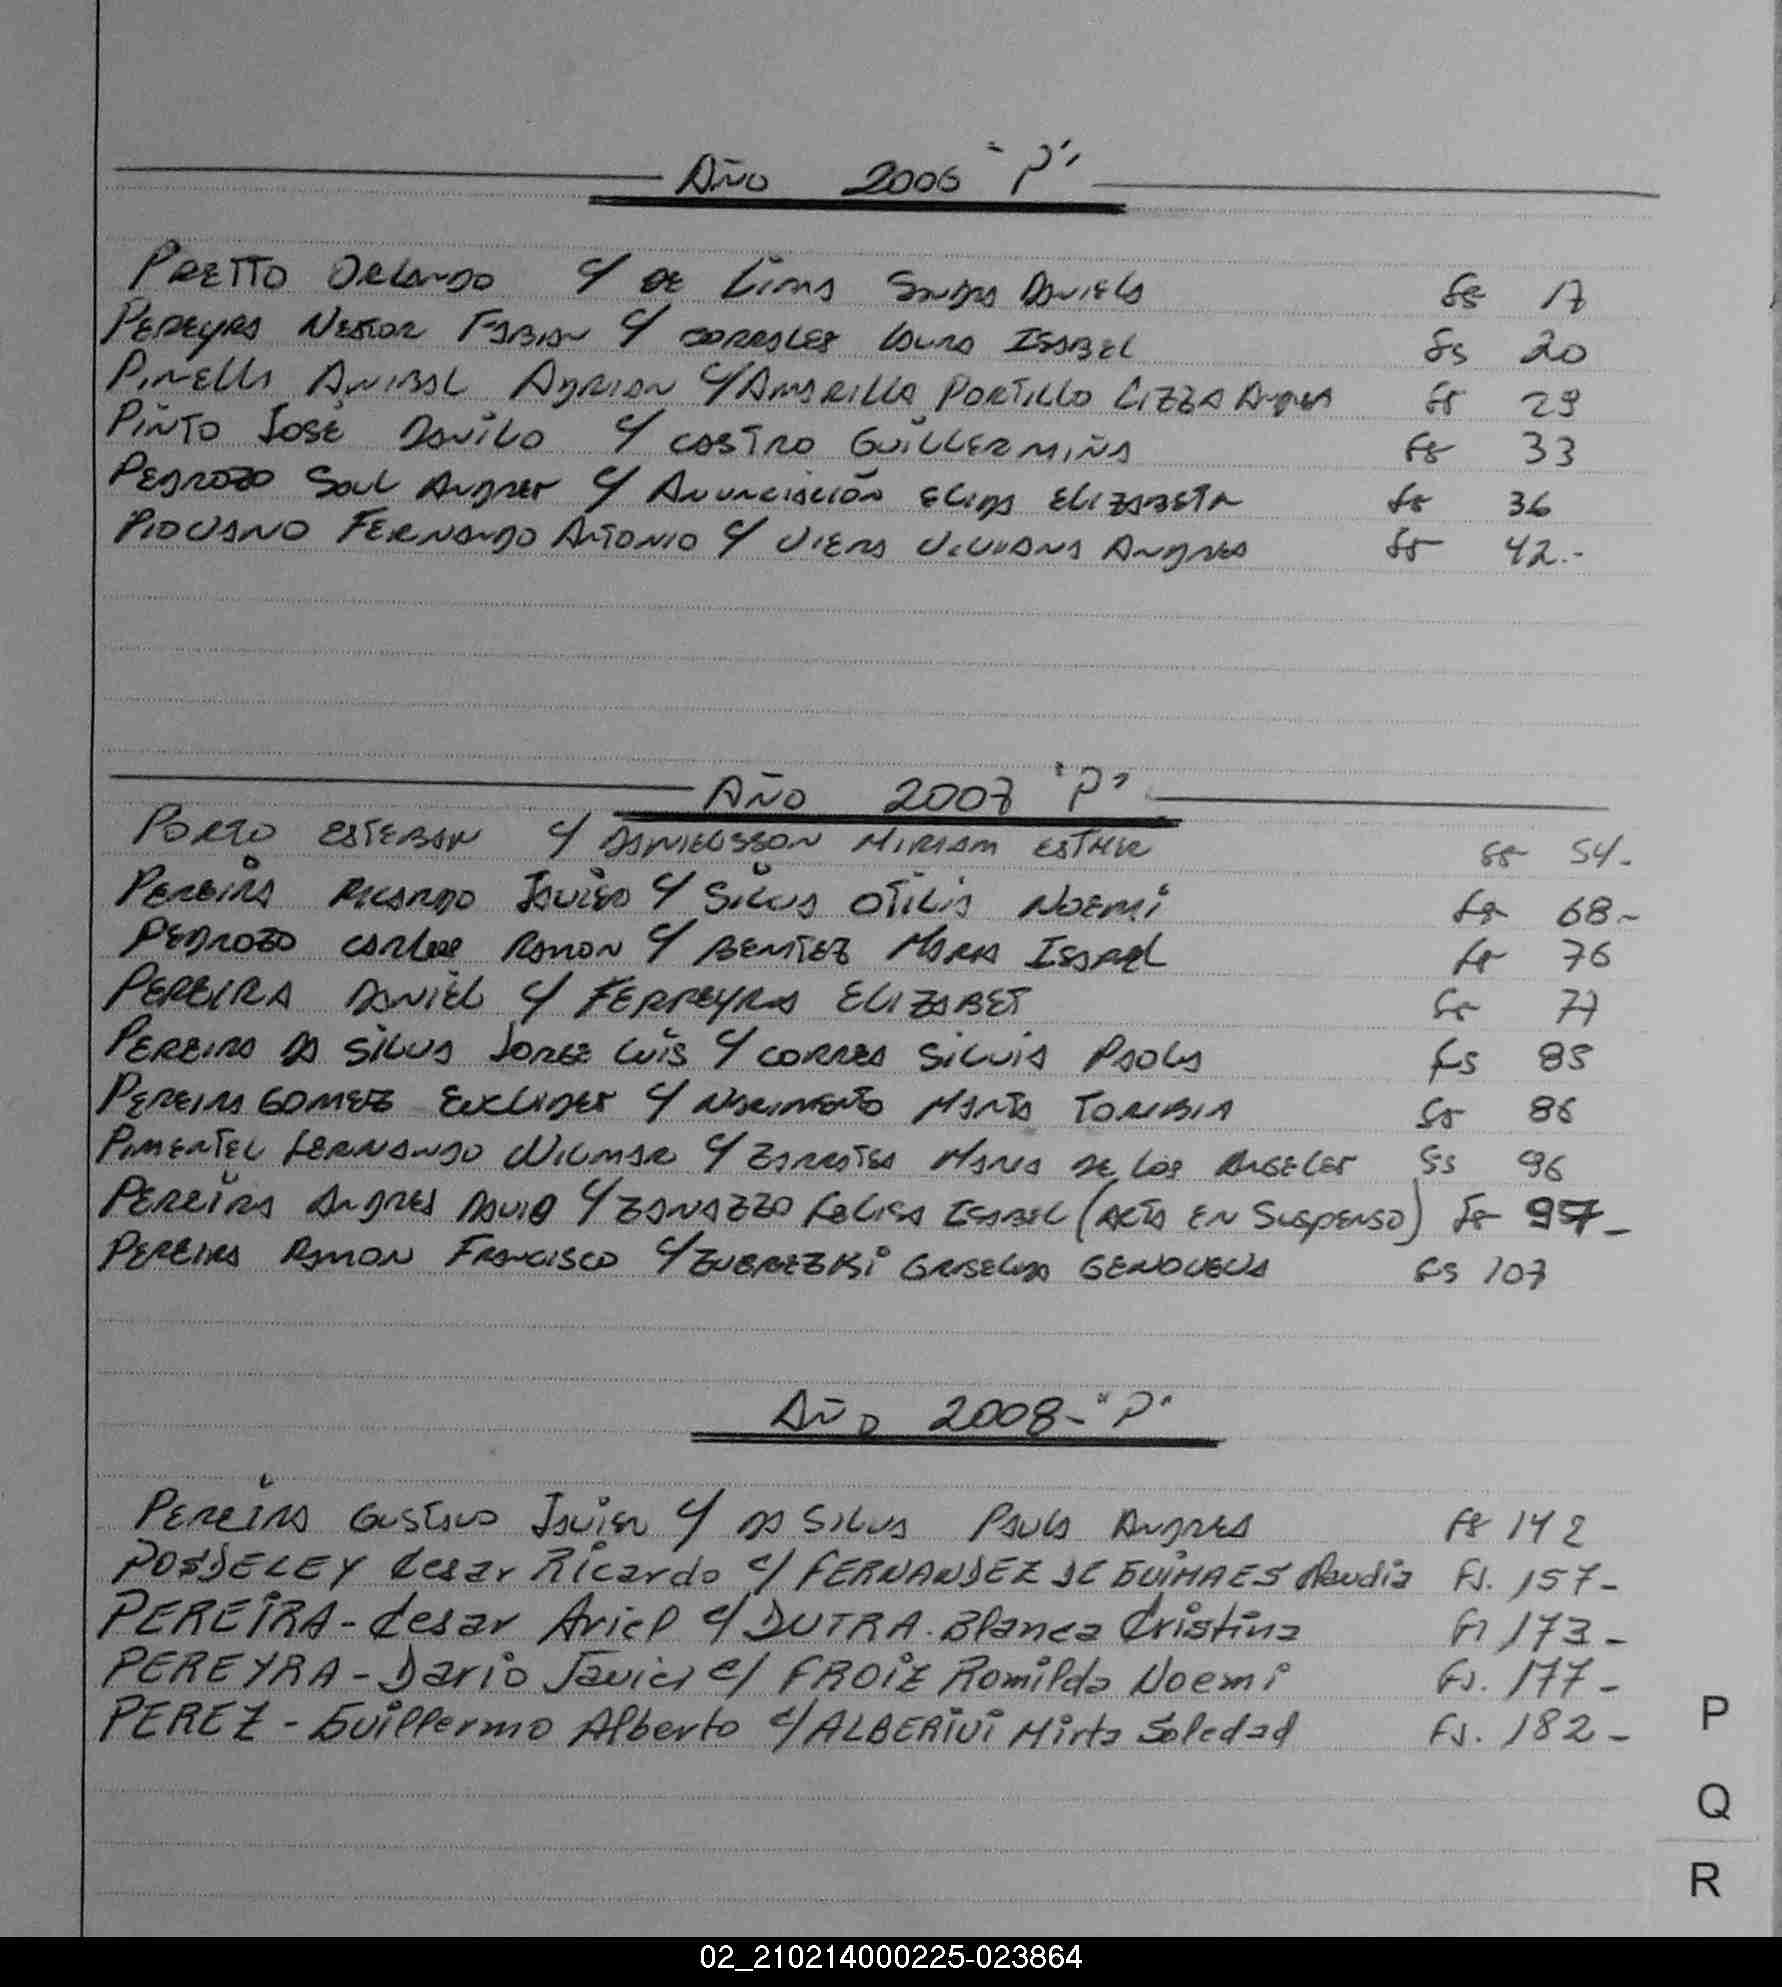 Año 2006 "P"
PRETTO ORLANDO c/ DE Lima Sandra Daniela fs 17
PEREYRA NESTOR FABIAN c/ CORRALES Laura ISABEL fs 20
PINELLI ANIBAL ADRIAN c/ AMARILLA PORTILLO LIZZA fs 29
PIÑTO José DANILO c/ CASTRO GUILLERMIÑA fs 33
PEDROZO Saul Andres c/ ANUNCIACIÓN ELIDA ELIZABETH fs 36
FERNANDO ANTONIO c/ VIERA VIVIANA ANDREA fs 42.-
Año 2007 "P"
PORTO ESTEBAN c/ DANIELSSON MIRIAM ESTHER fs 54-
PEREIRA RICARDO JAVIER c/ SILVA OTILIA NOEMI fs 68-
PEDROZO CARLOS RAMON c/ BENITEZ MARIA ISABEL fs 76
PEREIRA DANIEL c/ FERREYRA ELIZABET fs 77
PEREIRA DA SILVA JORGE LUIS c/ CORREA SILVIA PAOLA fs 85
PEREIRA GOMEZ EUCLIDES c/ NACIMENTO MARTA TORIBIA fs 86
PIMENTEL FERNANDO WILMAR c/ ZARATEA MARIA DE LOS ANGELES fs 96
PEREIRA ANDRES DAVID c/ ZANAZZO FELISA ISABEL (ACTA EN SUSPENSO) fs 97-
PEREIRA RAMON FRANCISCO c/ ZUBREZKI GRISELDA GENOVEVA fs 107
Año 2008-"P"
PEREIRA GUSTAVO JAVIER c/ DA SILVA PAULA ANDREA fs 142
POSDELEY Cesar Ricardo c/ FERNANDEZ DE GUIMAES Claudia Fs. 157-
PEREIRA- Cesar Ariel c/ DUTRA. Blanca Cristina Fs 173-
PEREYRA- Dario Javier c/ FROIZ Romilda Noemi Fs. 177-
PEREZ- Guillermo Alberto c/ ALBERINI Mirta Soledad Fs. 182-
P
Q
R
02_210214000225-023864